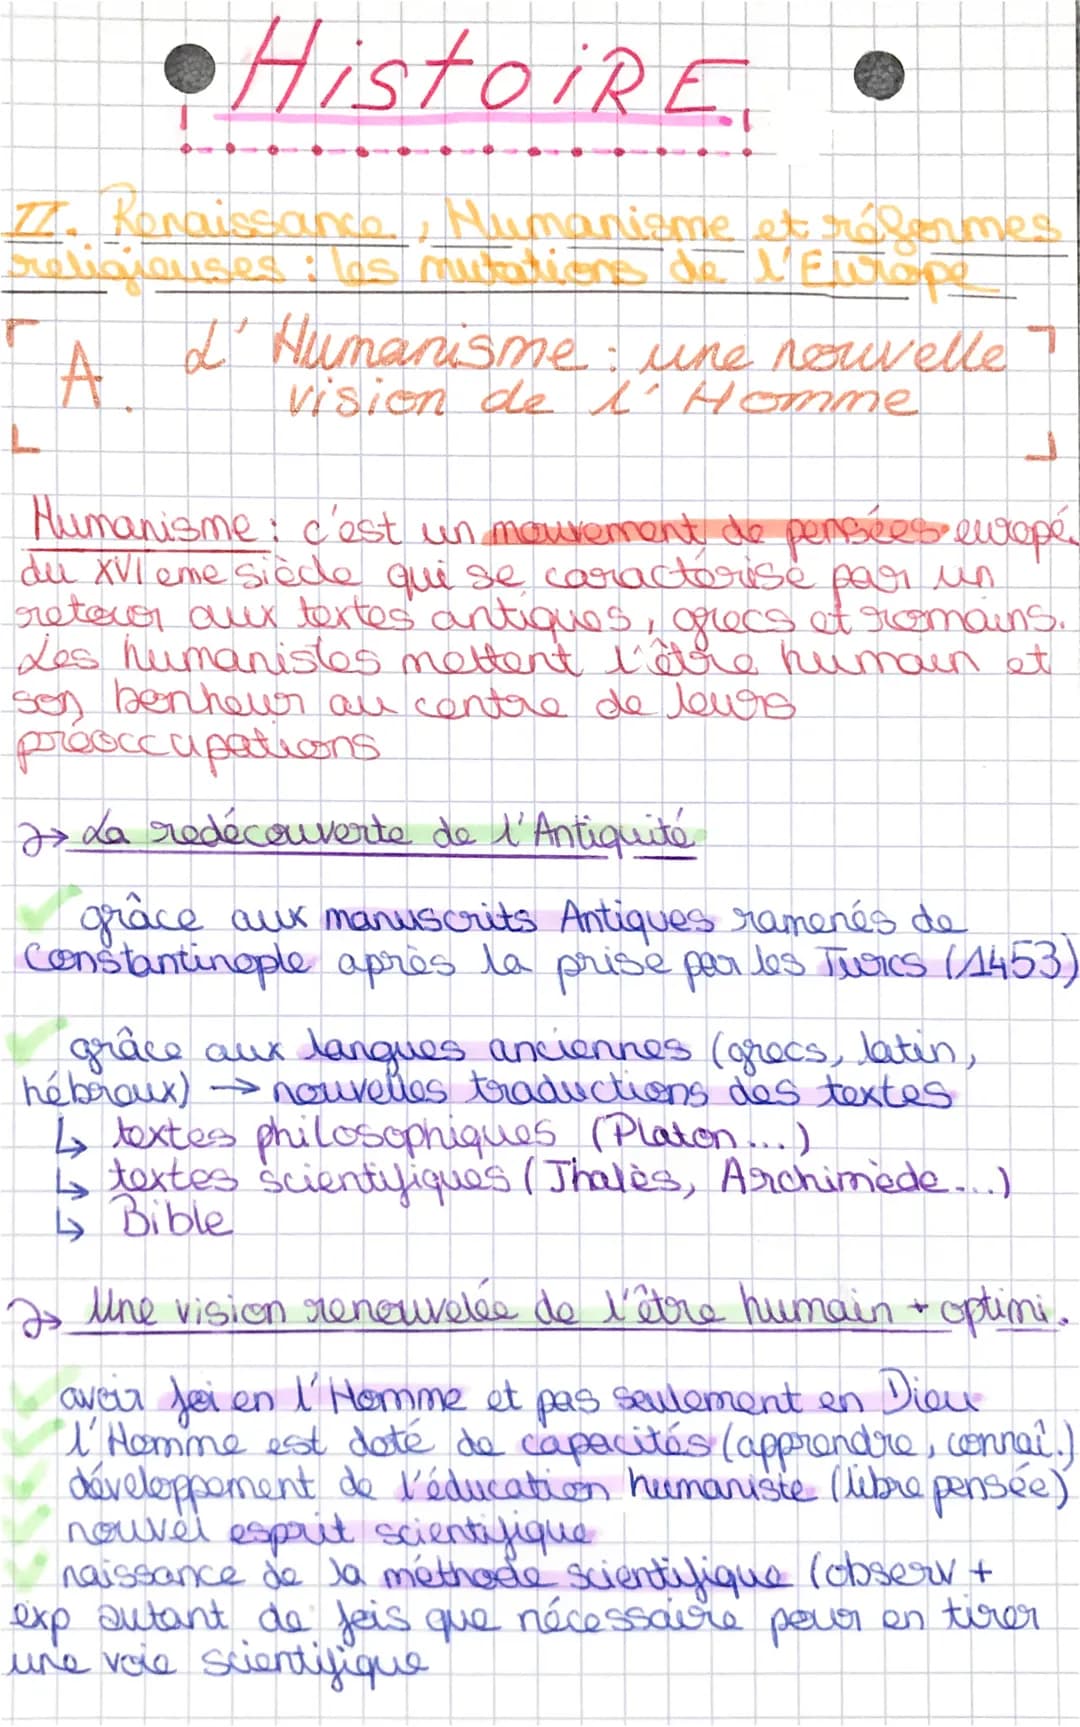 HistoiRE
II. Renaissance, Humanisme et réformes
religieuses : les mutations de l'Europe
A. L'Humanisme : une nouvelle
vision de l'Homme
Humanisme : c'est un mouvement de pensées europé.
du XVIeme siècle qui se caractérise par un
retour aux textes antiques, grecs et romains.
Les humanistes mettent l'être humain et
son bonheur au centre de leurs
préoccupations
→ La redécouverte de l'Antiquité
grâce aux manuscrits Antiques ramenés de
Constantinople après la prise par les Turcs (1453)
grâce aux langues anciennes (grecs, latin,
hébreux) → nouvelles traductions des textes
↳ textes philosophiques (Platon...)
↳ textes scientifiques (Thalès, Archimède...)
↳ Bible
→ Une vision renouvelée de l'être humain + optimi.
avoir foi en l'Homme et pas seulement en Dieu
l'Homme est doté de capacités (apprendre, connaî.)
développement de l'éducation humaniste (libre pensée)
nouvel esprit scientifique
naissance de la méthode scientifique (observ +
exp autant de fois que nécessaire pour en tirer
une voie scientifique